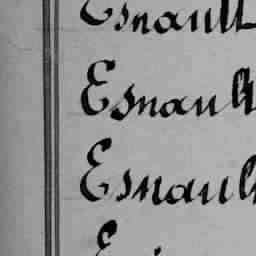 Esnault
Esnault
Esnault